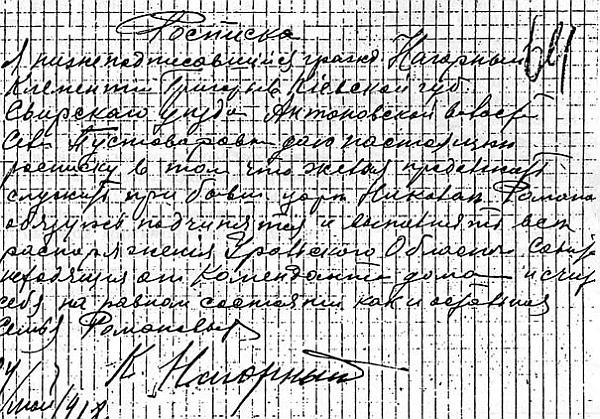 Росписка
Я нижеподписовшийся гражд Нагорный
Клементи Григорьев Киевской губ.
Свирского уезда Антоновской волост
Села Пустоваров даю настоящую
росписку в том что желая продолжать
служит при бовш царе Николаи Романо
обязуюсь подчинятся и выполнять все
распоряжения Уральского Област Совет
исходящия от Коменданта дома и счит
себя на равном состоянии как и остальная
семья Романовых
К. Нагорный
24/
май 1918.